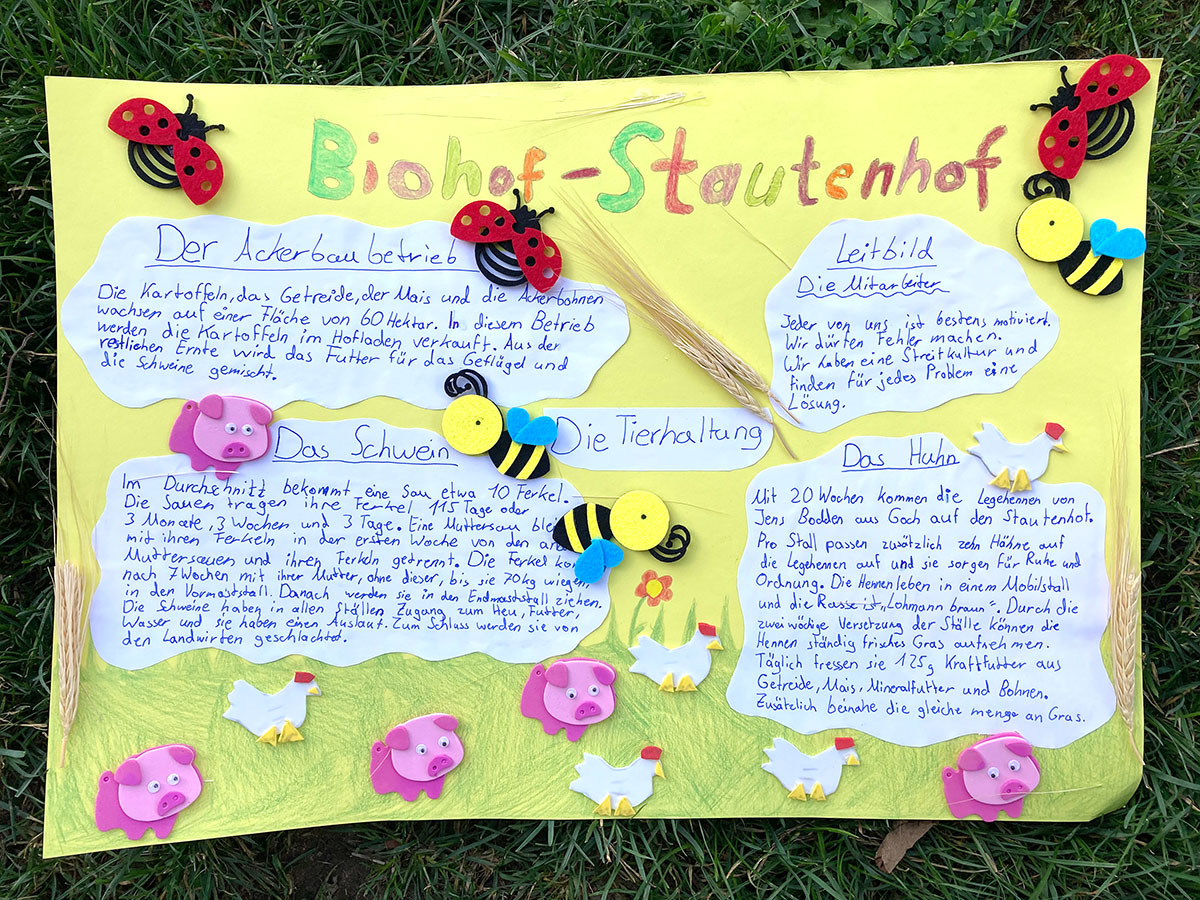 Biohof-Stautenhof
Der Ackerbaubetrieb
Die Kartoffeln, das Getreide, der Mais und die Ackerbohnen
wachsen auf einer Fläche von 60 Hektar. In diesem Betrieb
werden die Kartoffeln im Hofladen verkauft. Aus der
restlichen Ernte wird das Futter für das Geflügel und
die Schweine gemischt.
Leitbild
Die Mitarbeiter
Jeder von uns ist bestens motiviert.
Wir dürfen Fehler machen.
Wir haben eine Streitkultur und
finden für jedes Problem eine
Lösung.
Die Tierhaltung
Das Schwein
Im Durchschnitt bekommt eine Sau etwa 10 Ferkel.
Die Sauen tragen ihre Ferkel 115 Tage oder
3 Monate, 3 Wochen und 3 Tage. Eine Muttersau
mit ihren Ferkeln in der ersten Woche von den
Muttersauen und ihren Ferkeln getrennt. Die Ferkel
nach 7 Wochen mit ihrer Mutter, ohne dieser, bis sie 70kg wiegen,
in den Vormaststall. Danach werden sie in den Endmaststall ziehen.
Die Schweine haben in allen Ställen Zugang zum Heu, Futter,
Wasser und sie haben einen Auslauf. Zum Schluss werden sie von
den Landwirten geschlachtet.
Das Huhn
Mit 20 Wochen kommen die Legehennen von
Jens Bodden aus Goch auf den Stautenhof.
Pro Stall passen zusätzlich zehn Hähne auf
die Legehennen auf und sie sorgen für Ruhe und
Ordnung. Die Hennen leben in einem Mobilstall
und die Rasse ist „Lohmann braun". Durch die
zweiwöchige Versetzung der Ställe können die
Hennen ständig frisches Gras aufnehmen.
Täglich fressen sie 125g Kraftfutter aus
Getreide, Mais, Mineralfutter und Bohnen.
Zusätzlich beinahe die gleiche menge an Gras.